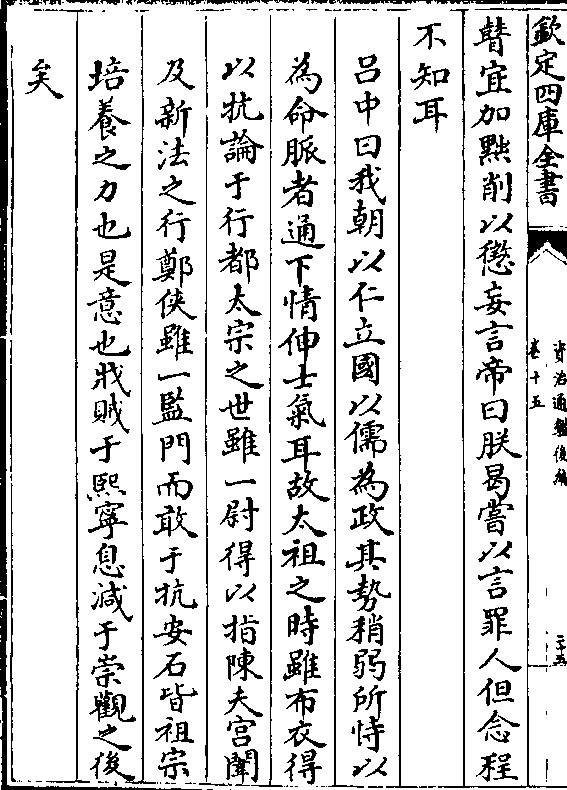 欽定四庫全書
資治通鑑後編
卷十五
二十五
瞽宜加黜削以懲妄言帝曰朕曷嘗以言罪人但念程
不知耳
吕中曰我朝以仁立國以儒為政其勢稍弱所恃以
為命脈者通下情伸士氣耳故太祖之時雖布衣得
以抗論于行都太宗之世雖一尉得以指陳夫宫闈
及新法之行鄭俠雖一監門而敢于抗安石皆祖宗
培養之力也是意也戕賊于熙寧息減于崇觀之後
矣